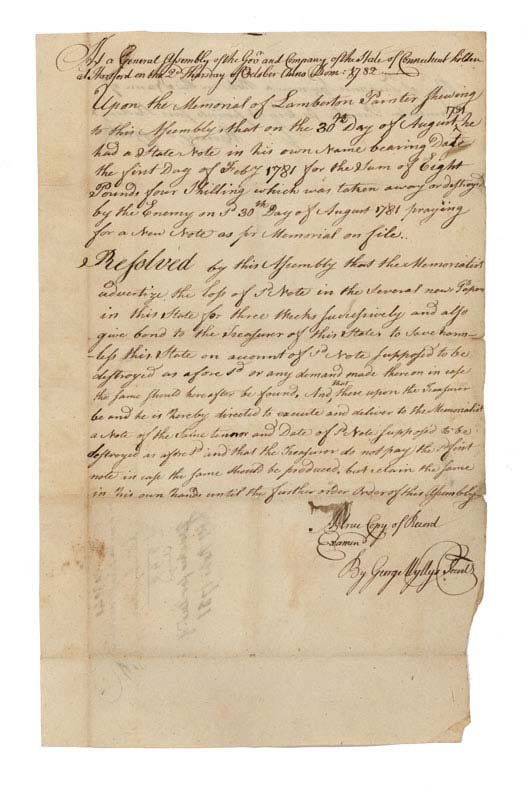 At a General Assembly of the Govr and Company of the State of Connecticut holden
at Hartford on the 2d Thursday of October Anno Dom: 1782
Upon the Memorial of Lamberton Painter Shewing
to this Assembly, that on the 30th Day of August 1781 he
had a State Note in his own Name bearing Date
the first Day of Feby 1781 for the Sum of Eight
Pounds four Shilling which was taken away or destroyed
by the Enemy on sd 30th Day of August 1781 praying
for a New Note as pr Memorial on file..
Resolved by this Assembly that the Memorialist
advertize the loss of sd Note in the Several news Papers
in this State for three Weeks successively and also
give bond to the Treasurer of this State to Save harm-
-less this State on account of sd Note Supposed to be
destroyed as afore sd or any demand made thereon in case
the same should hereafter be found, And that there upon the Treasurer
be and he is hereby directed to execute and deliver to the Memorialist
a Note of the Same tennor and Date of sd Note Supposed to be
destroyed as afore sd and that the Treasurer do not pay the first
note in case the same should be produced, but retain the same
in his own hand until the further order Order of this Assembly
A true Copy of Record
Examined
By George Wyllys Secrety